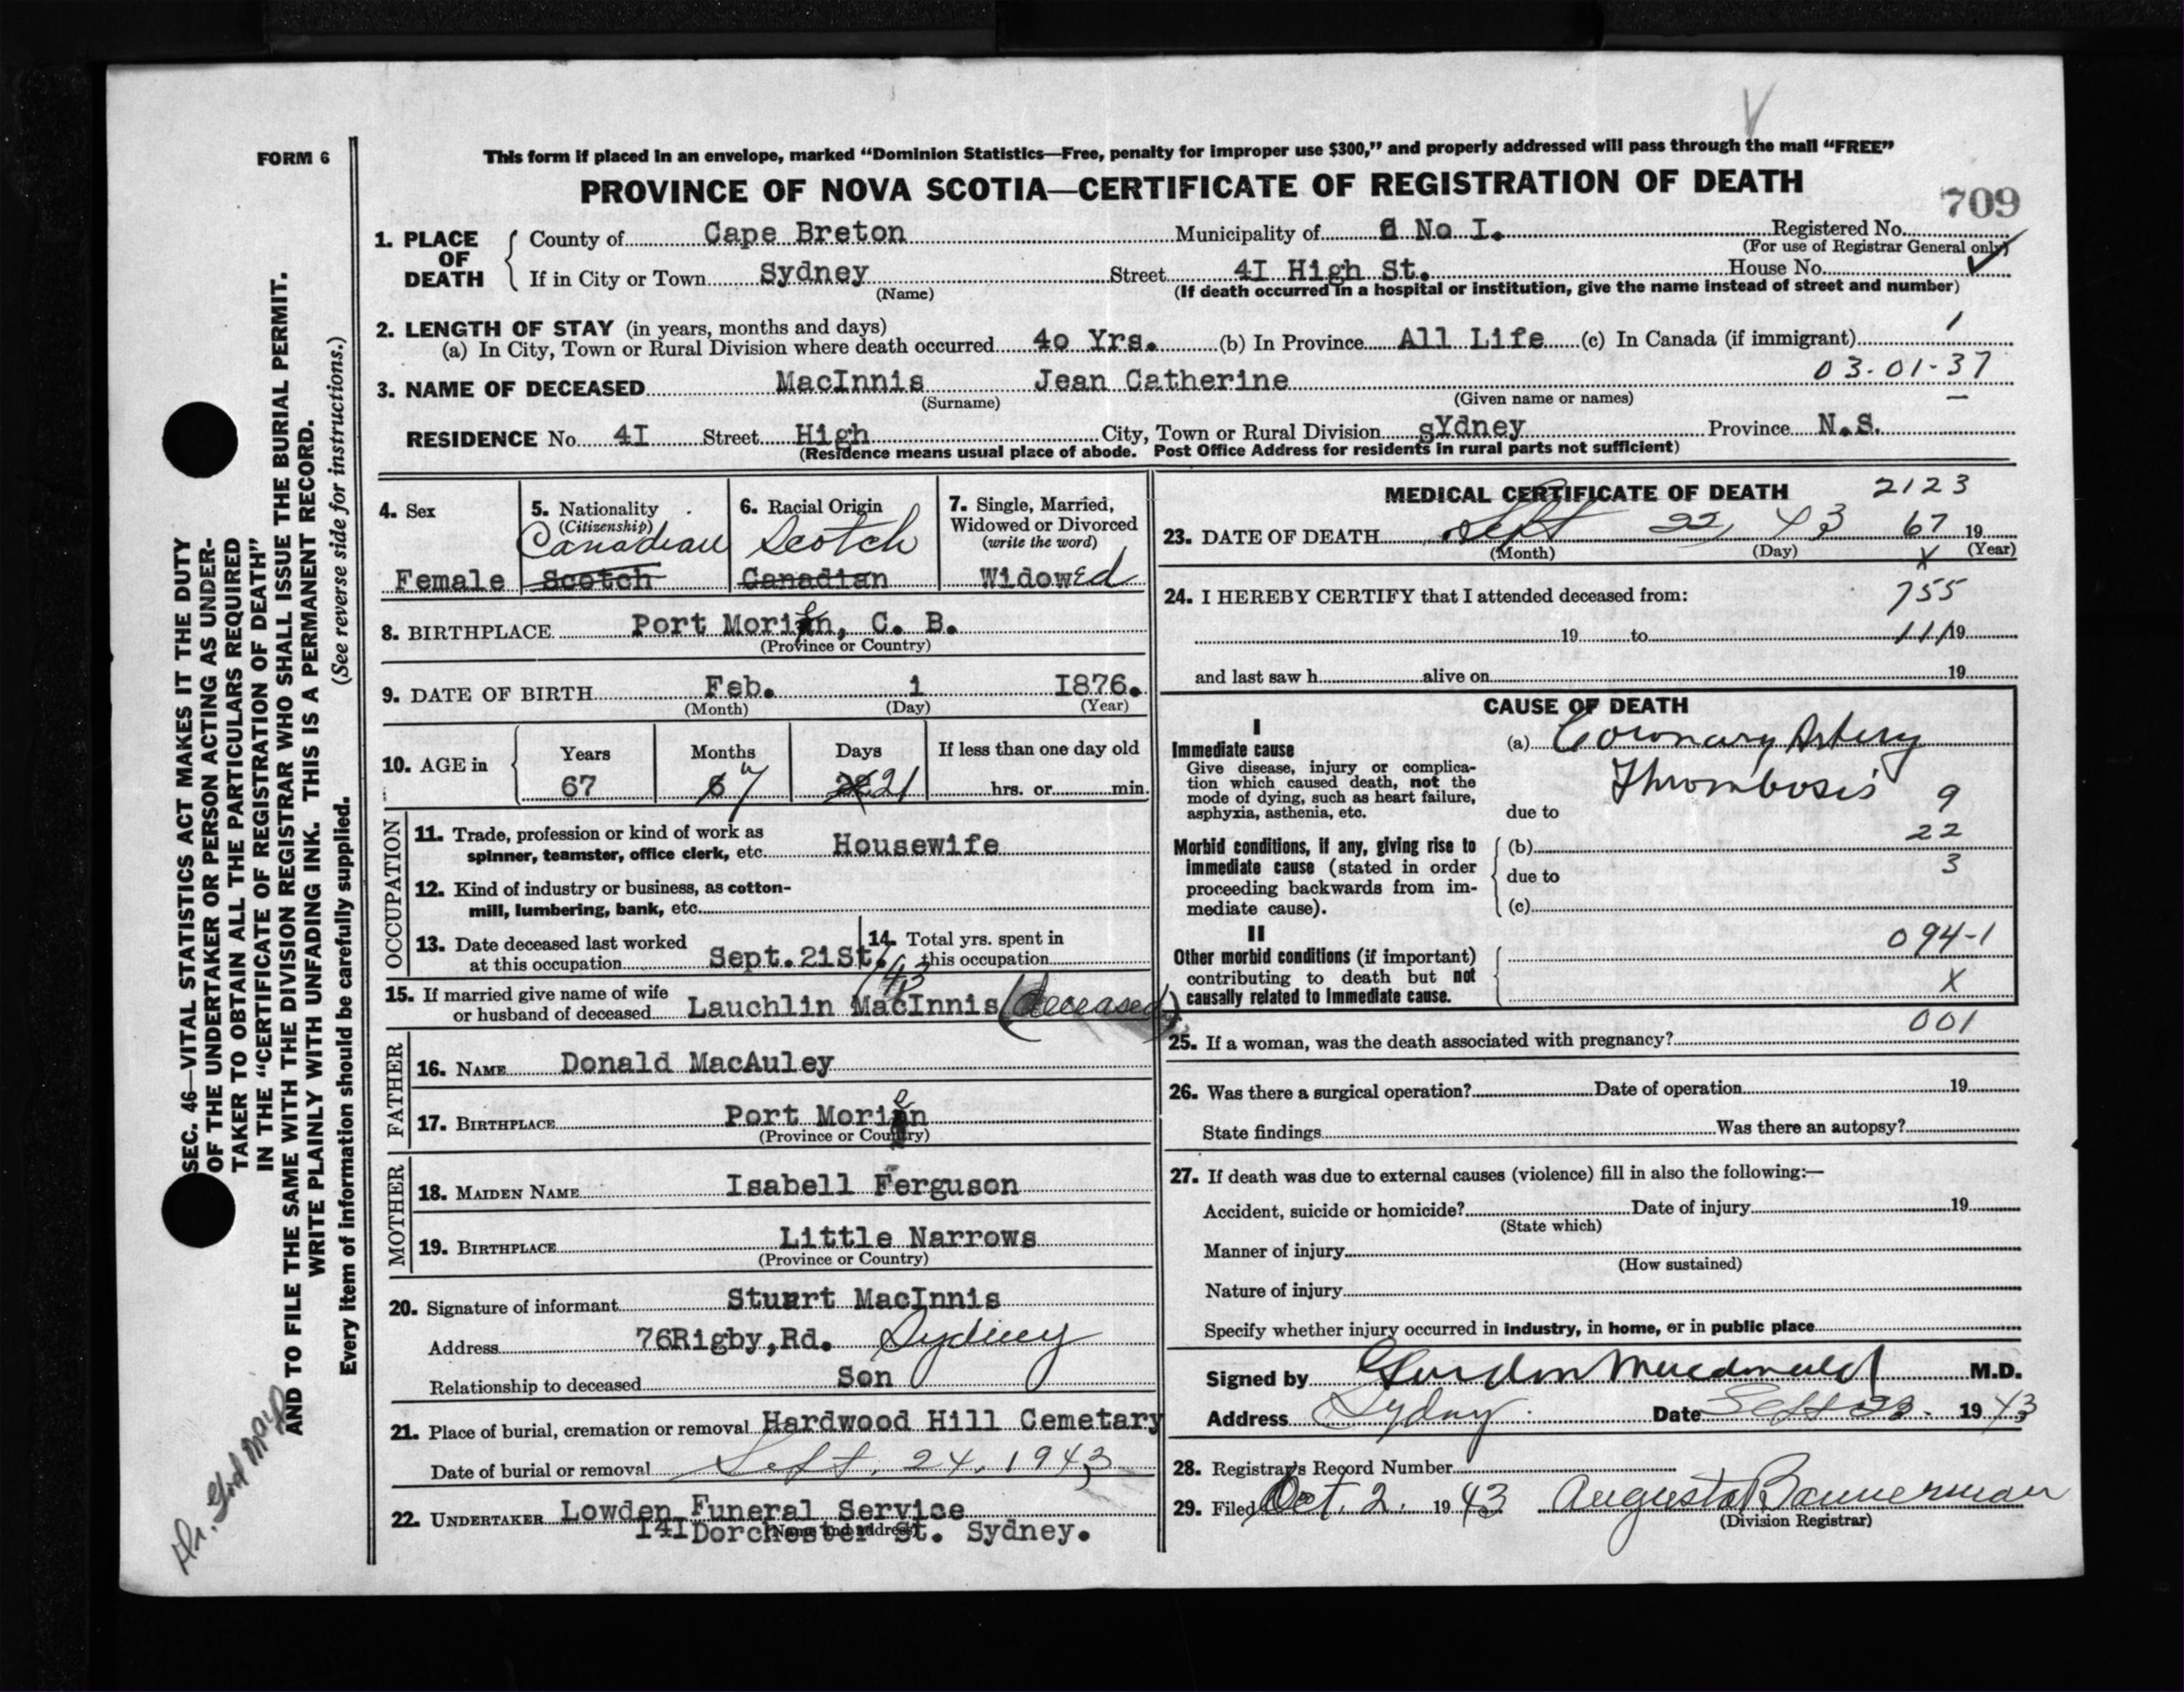 FORM 6
This form if placed in an envelope, marked "Dominion Statistics—Free, penalty for improper use $300," and properly addressed will pass through the mail "FREE"
PROVINCE OF NOVA SCOTIA—CERTIFICATE OF REGISTRATION OF DEATH
709
1. PLACE OF DEATH
County of Cape Breton Municipality of C No I. Registered No.
(For use of Registrar General only)
If in City or Town Sydney Street 4I High St. House No.
(Name) (If death occurred in a hospital or institution, give the name instead of street and number)
2. LENGTH OF STAY (in years, months and days)
(a) In City, Town or Rural Division where death occurred 40 Yrs. (b) In Province All Life (c) In Canada (if immigrant) 1
03-01-37
3. NAME OF DECEASED MacInnis Jean Catherine
(Surname) (Given name or names)
RESIDENCE No. 4I Street High City, Town or Rural Division sYdney Province N.S.
(Residence means usual place of abode. Post Office Address for residents in rural parts not sufficient)
4. Sex
Female
5. Nationality
(Citizenship)
Canadian
Scotch
6. Racial Origin
Scotch
Canadian
7. Single, Married,
Widowed or Divorced
(write the word)
Widowed
8. BIRTHPLACE Port Morien, C. B.
(Province or Country)
9. DATE OF BIRTH Feb. 1 I876.
(Month) (Day) (Year)
10. AGE in
Years Months Days If less than one day old
67 6 7 21 hrs. or min.
OCCUPATION
11. Trade, profession or kind of work as
spinner, teamster, office clerk, etc. Housewife
12. Kind of industry or business, as cotton-
mill, lumbering, bank, etc.
13. Date deceased last worked
at this occupation Sept.21St./43
14. Total yrs. spent in
this occupation
15. If married give name of wife
or husband of deceased Lauchlin MacInnis (deceased)
FATHER
16. NAME Donald MacAuley
17. BIRTHPLACE Port Morien
(Province or Country)
MOTHER
18. MAIDEN NAME Isabell Ferguson
19. BIRTHPLACE Little Narrows
(Province or Country)
20. Signature of informant Stuart MacInnis
Address 76Rigby,Rd. Sydney
Relationship to deceased Son
21. Place of burial, cremation or removal Hardwood Hill Cemetary
Date of burial or removal Sept. 24. 1943
22. UNDERTAKER Lowden Funeral Service
(Name and address)
I4IDorchester St. Sydney.
MEDICAL CERTIFICATE OF DEATH 2123
23. DATE OF DEATH Sept 22, 43 67 19
(Month) (Day) (Year)
X
24. I HEREBY CERTIFY that I attended deceased from: 755
19 to 11/19
and last saw h alive on 19
CAUSE OF DEATH
I
Immediate cause
Give disease, injury or complica-
tion which caused death, not the
mode of dying, such as heart failure,
asphyxia, asthenia, etc.
(a) Coronary Artery
Thrombosis
9
due to
22
Morbid conditions, if any, giving rise to
immediate cause (stated in order
proceeding backwards from im-
mediate cause).
(b)
3
due to
(c)
II
Other morbid conditions (if important)
contributing to death but not
causally related to immediate cause.
094-1
X
001
25. If a woman, was the death associated with pregnancy?
26. Was there a surgical operation? Date of operation 19
State findings Was there an autopsy?
27. If death was due to external causes (violence) fill in also the following:—
Accident, suicide or homicide? Date of injury 19
(State which)
Manner of injury
(How sustained)
Nature of injury
Specify whether injury occurred in industry, in home, or in public place
Signed by Gordon Macdonald M.D.
Address Sydney. Date Sept 23. 19 43
28. Registrar's Record Number
29. Filed Oct. 2. 19 43 Augusta Bannerman
(Division Registrar)
SEC. 46—VITAL STATISTICS ACT MAKES IT THE DUTY
OF THE UNDERTAKER OR PERSON ACTING AS UNDER-
TAKER TO OBTAIN ALL THE PARTICULARS REQUIRED
IN THE "CERTIFICATE OF REGISTRATION OF DEATH"
AND TO FILE THE SAME WITH THE DIVISION REGISTRAR WHO SHALL ISSUE THE BURIAL PERMIT.
WRITE PLAINLY WITH UNFADING INK. THIS IS A PERMANENT RECORD.
Every item of information should be carefully supplied. (See reverse side for instructions.)
Dr.